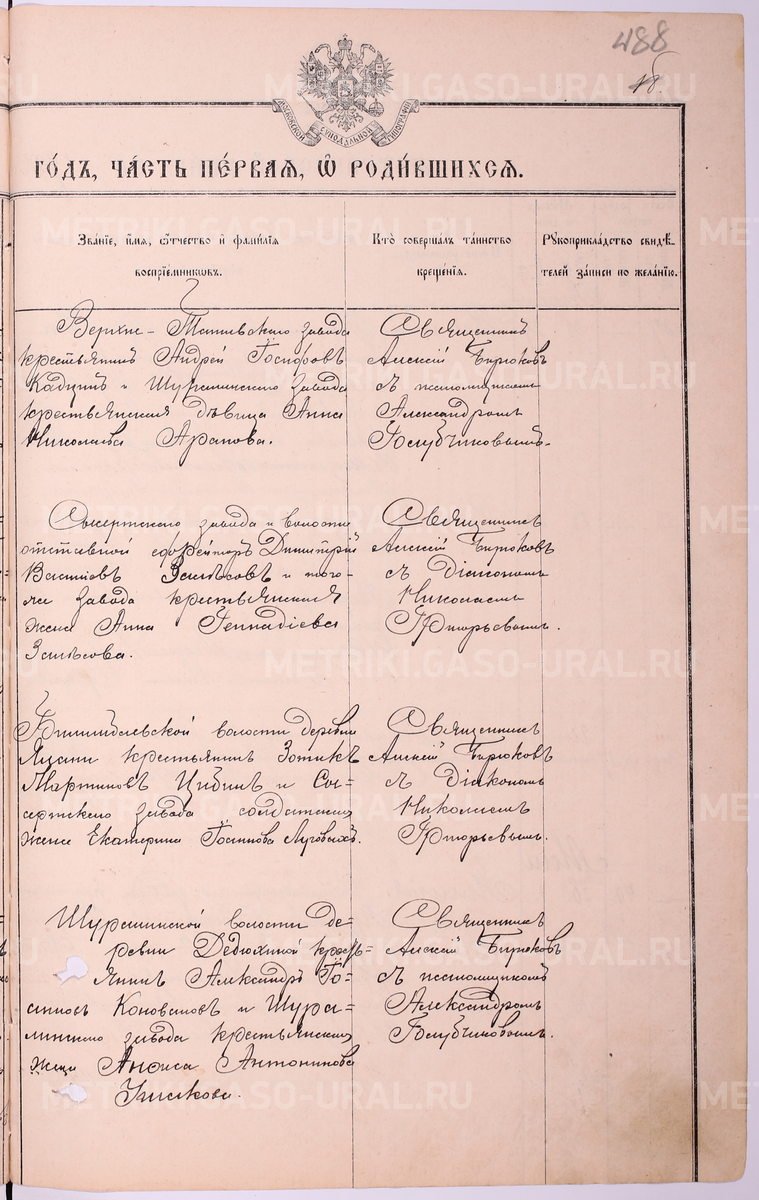 488
18.
МОСКОВСКОЙ СѴНОДАЛЬНОЙ ТИПОГРАФІИ
ГОДЪ, ЧА́СТЬ ПЕ́РВАЯ, Ѡ РОДИ́ВШИХСЯ.
Зва́нїе, и́мя, ѻ́тчество и҆ фами́лїя
воспрїе́мниковъ.
Кто̀ соверша́лъ та́инство
креще́нїя.
Рꙋкоприкла́дство свидѣ́-
телей за́писи по жела́нїю.
Верхне-Тагильскаго завода
крестьянинъ Андрей
и Шуралинскаго завода
крестьянская дѣвица Анна
Николаева Арапова.
Священникъ
Алексѣй Бирюковъ
съ псаломщикомъ
Александромъ
Голубчиковымъ.
Сысертскаго завода и волости
отставной ефрейторъ Димитрій
Васильевъ и того-
же завода крестьянская
жена Анна Геннадіева
Священникъ
Алексѣй Бирюковъ
съ Діакономъ
Николаемъ
Григорьевымъ.
Билимбаевской волости деревни
крестьянинъ Зотикъ
Мартиновъ и Сы-
сертскаго завода солдатская
жена Екатерина Луговыхъ.
Священникъ
Алексѣй Бирюковъ
съ Діакономъ
Николаемъ
Григорьевымъ.
Шуралинской волости де-
ревни Дедюхиной кресть-
янинъ Александръ
Коноваловъ и Шура-
линскаго завода крестьянская
жена Антонинова
Священникъ
Алексѣй Бирюковъ
съ псаломщикомъ
Александромъ
Голубчиковымъ.
METRIKI.GASO-URAL.RU